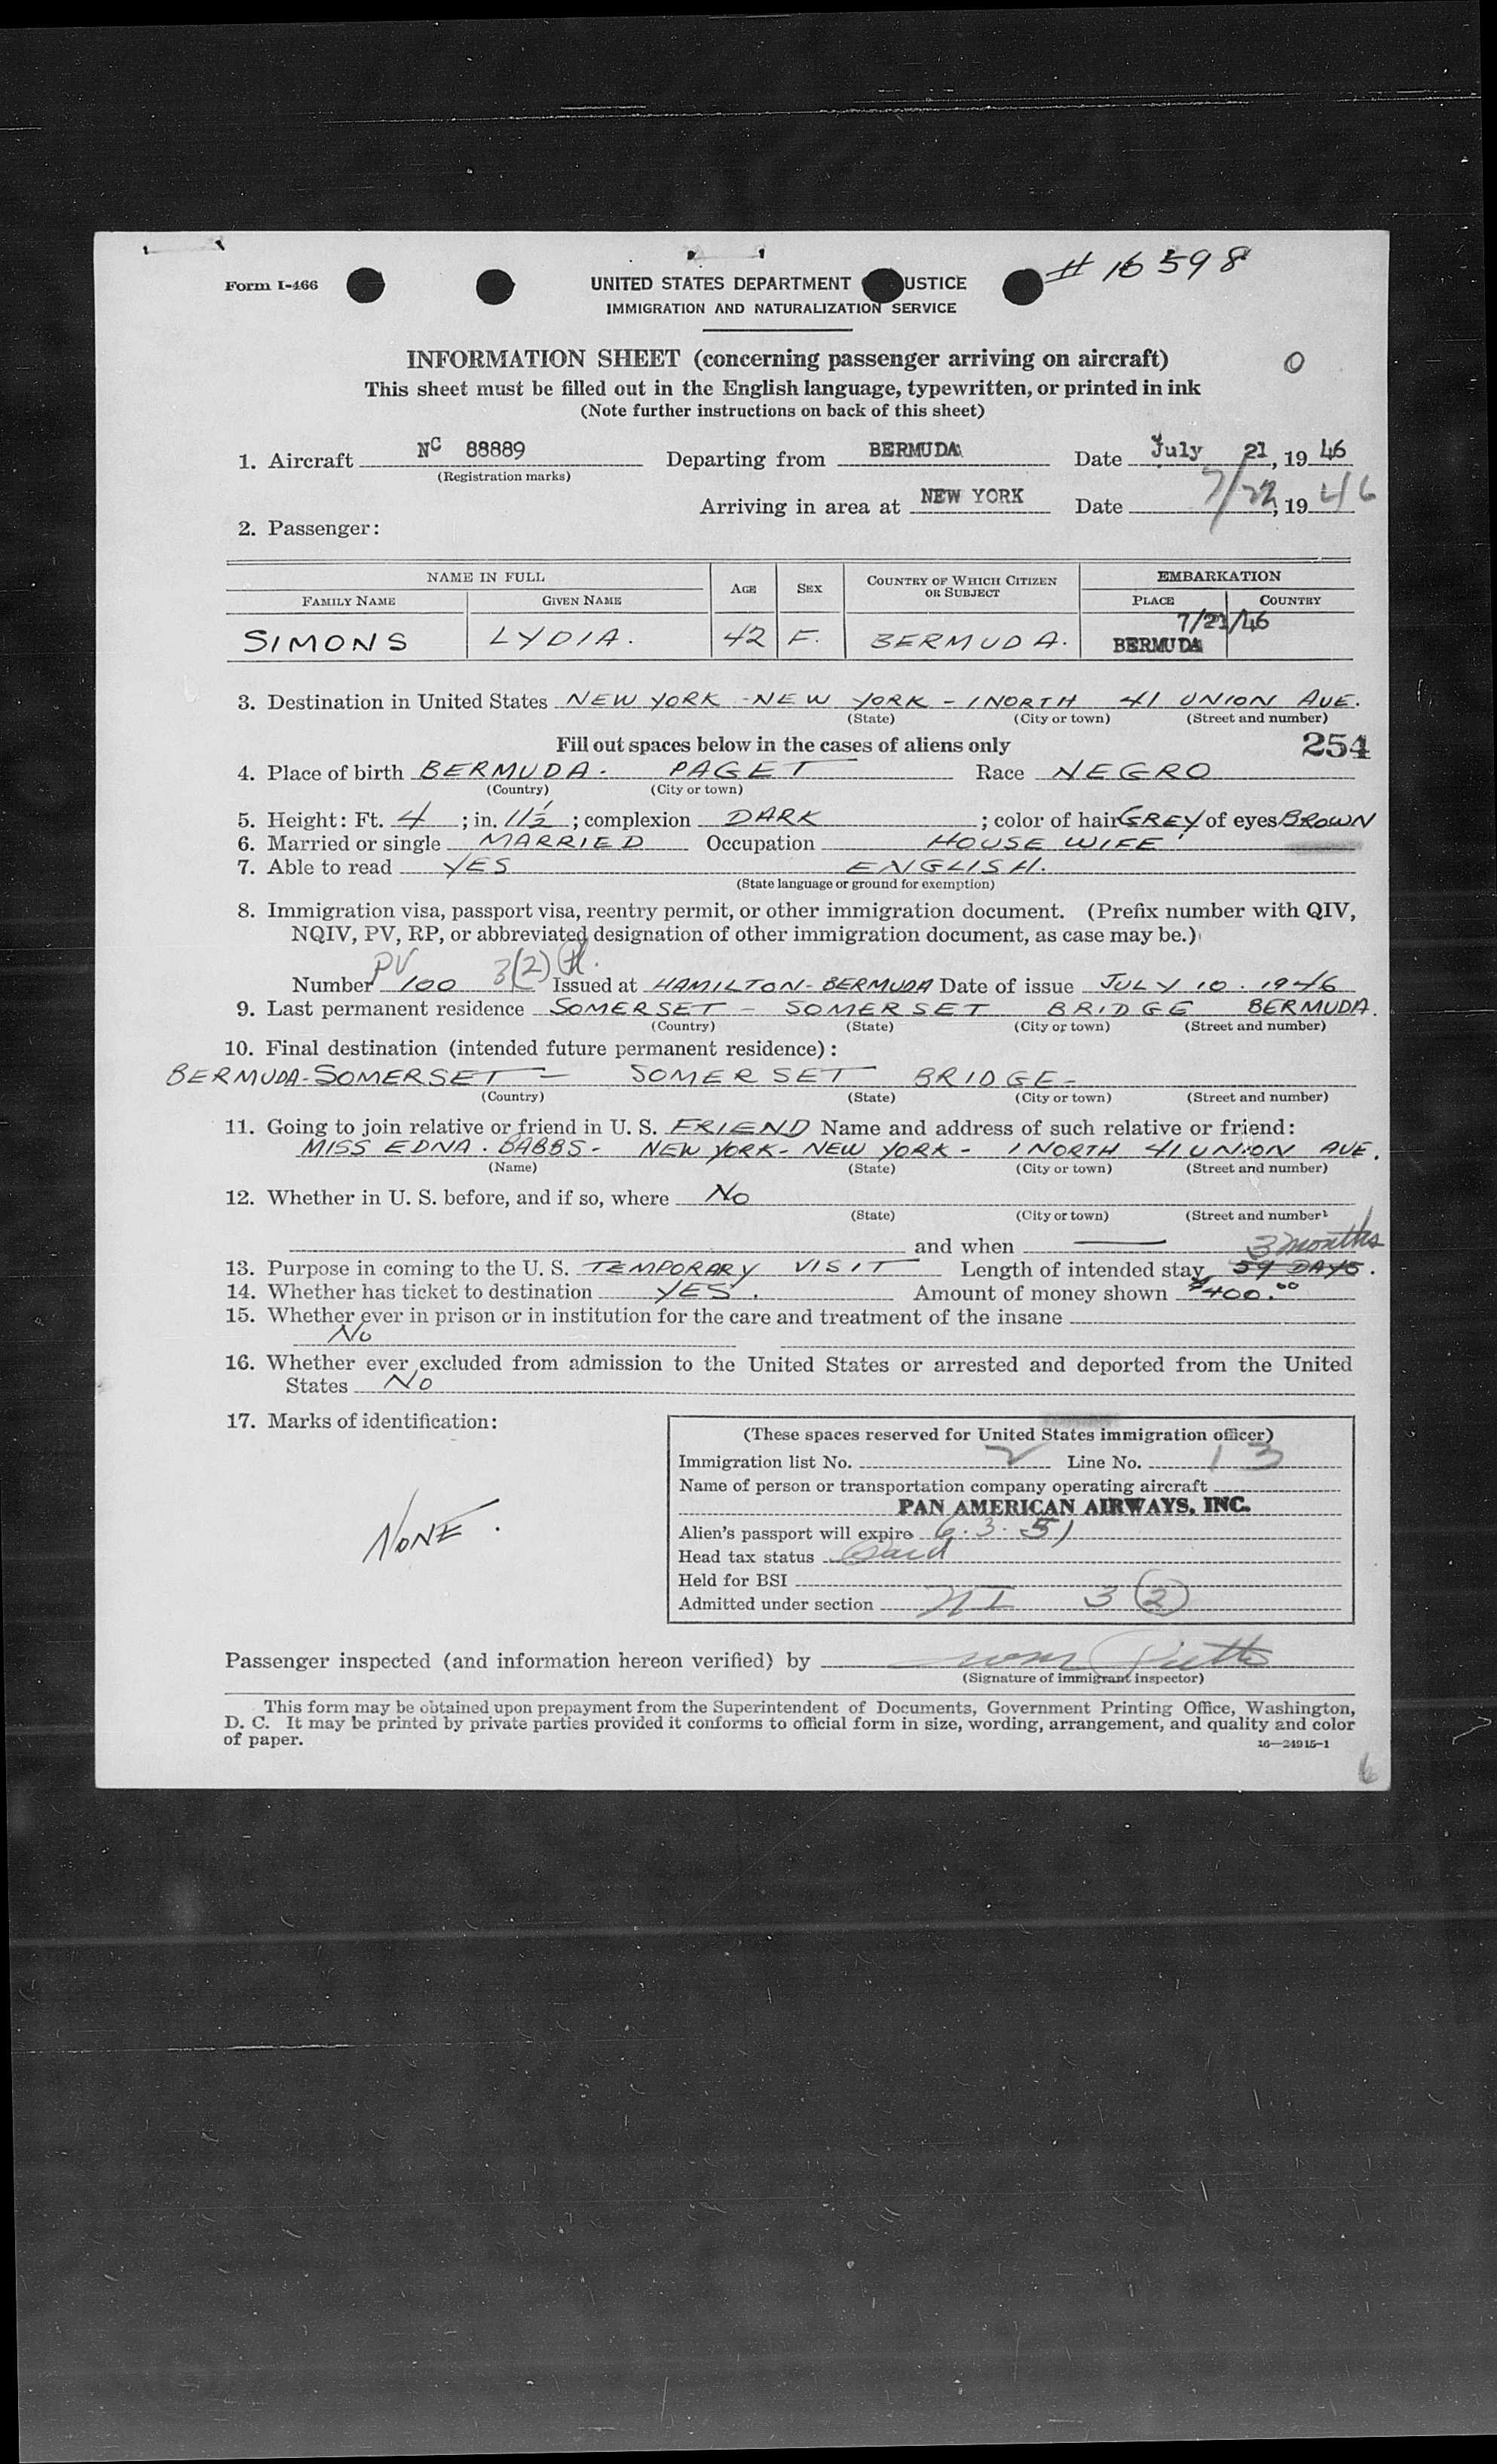 # 16598
Form I-466
UNITED STATES DEPARTMENT USTICE
IMMIGRATION AND NATURALIZATION SERVICE
INFORMATION SHEET (concerning passenger arriving on aircraft)
O
This sheet must be filled out in the English language, typewritten, or printed in ink
(Note further instructions on back of this sheet)
1. Aircraft NC 88889 Departing from BERMUDA Date July 21, 19 46
(Registration marks)
Arriving in area at NEW YORK Date 7/22, 19 46
2. Passenger:
NAME IN FULL AGE SEX COUNTRY OF WHICH CITIZEN OR SUBJECT EMBARKATION
FAMILY NAME GIVEN NAME PLACE COUNTRY
7/21/46
SIMONS LYDIA. 42 F. BERMUDA. BERMUDA
3. Destination in United States NEW YORK - NEW YORK - 1 NORTH 41 UNION AVE.
(State) (City or town) (Street and number)
Fill out spaces below in the cases of aliens only 254
4. Place of birth BERMUDA - PAGET Race NEGRO
(Country) (City or town)
5. Height: Ft. 4 ; in. 11½ ; complexion DARK ; color of hair GREY of eyes BROWN
6. Married or single MARRIED Occupation HOUSE WIFE
7. Able to read YES ENGLISH.
(State language or ground for exemption)
8. Immigration visa, passport visa, reentry permit, or other immigration document. (Prefix number with QIV,
NQIV, PV, RP, or abbreviated designation of other immigration document, as case may be.)
Number PV 100 3(2) Issued at HAMILTON - BERMUDA Date of issue JULY 10. 1946
9. Last permanent residence SOMERSET - SOMERSET BRIDGE BERMUDA.
(Country) (State) (City or town) (Street and number)
10. Final destination (intended future permanent residence):
BERMUDA - SOMERSET - SOMERSET BRIDGE -
(Country) (State) (City or town) (Street and number)
11. Going to join relative or friend in U. S. FRIEND Name and address of such relative or friend:
MISS EDNA. BABBS - NEW YORK - NEW YORK - 1 NORTH 41 UNION AVE.
(Name) (State) (City or town) (Street and number)
12. Whether in U. S. before, and if so, where No
(State) (City or town) (Street and number)
and when — 3 months
13. Purpose in coming to the U. S. TEMPORARY VISIT Length of intended stay 59 DAYS.
14. Whether has ticket to destination YES. Amount of money shown $400.00
15. Whether ever in prison or in institution for the care and treatment of the insane
No
16. Whether ever excluded from admission to the United States or arrested and deported from the United
States No
17. Marks of identification:
NONE.
(These spaces reserved for United States immigration officer)
Immigration list No. 2 Line No. 13
Name of person or transportation company operating aircraft
PAN AMERICAN AIRWAYS, INC.
Alien's passport will expire 6.3.51
Head tax status Paid
Held for BSI
Admitted under section NI 3(2)
Passenger inspected (and information hereon verified) by
(Signature of immigrant inspector)
This form may be obtained upon prepayment from the Superintendent of Documents, Government Printing Office, Washington,
D. C. It may be printed by private parties provided it conforms to official form in size, wording, arrangement, and quality and color
of paper.
16—24915-1
6